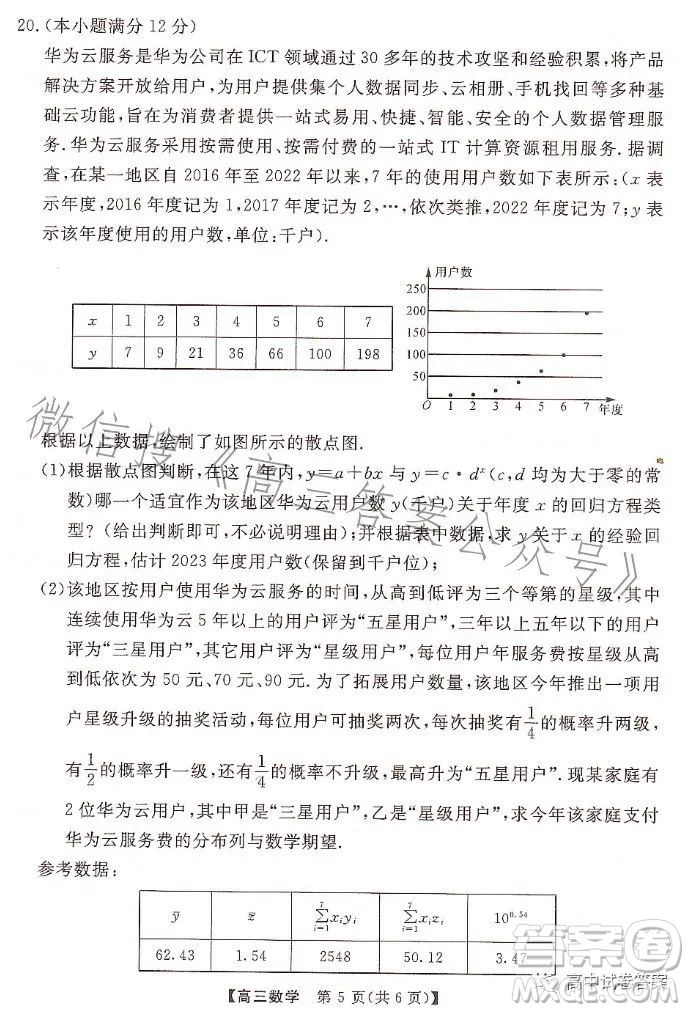 20.(本小题满分12分)
华为云服务是华为公司在ICT领域通过30多年的技术攻坚和经验积累,将产品
解决方案开放给用户,为用户提供集个人数据同步、云相册、手机找回等多种基
础云功能,旨在为消费者提供一站式易用、快捷、智能、安全的个人数据管理服
务.华为云服务采用按需使用、按需付费的一站式IT计算资源租用服务.据调
查,在某一地区自2016年至2022年以来,7年的使用用户数如下表所示:(x表
示年度,2016年度记为1,2017年度记为2,…,依次类推,2022年度记为7;y表
示该年度使用的用户数,单位:千户).
x 1 2 3 4 5 6 7
y 7 9 21 36 66 100 198
用户数
250
200
150
100
50
O 1 2 3 4 5 6 7 年度
根据以上数据,绘制了如图所示的散点图.
(1)根据散点图判断,在这7年内,y=a+bx与y=c·d^x(c,d均为大于零的常
数)哪一个适宜作为该地区华为云用户数y(千户)关于年度x的回归方程类
型?(给出判断即可,不必说明理由);并根据表中数据,求y关于x的经验回
归方程,估计2023年度用户数(保留到千户位);
(2)该地区按用户使用华为云服务的时间,从高到低评为三个等第的星级,其中
连续使用华为云5年以上的用户评为“五星用户”,三年以上五年以下的用
户评为“三星用户”,其它用户评为“星级用户”,每位用户年服务费按星级从高
到低依次为50元、70元、90元.为了拓展用户数量,该地区今年推出一项用
户星级升级的抽奖活动,每位用户可抽奖两次,每次抽奖有1/4的概率升两级,
有1/2的概率升一级,还有1/4的概率不升级,最高升为“五星用户”.现某家庭有
2位华为云用户,其中甲是“三星用户”,乙是“星级用户”,求今年该家庭支付
华为云服务费的分布列与数学期望.
参考数据:
ȳ z̄ ∑_{i=1}^{7}x_iy_i ∑_{i=1}^{7}x_iz_i 10^{0.54}
62.43 1.54 2548 50.12 3.47
【高三数学 第5页(共6页)】
微信搜《高三答案公众号》
答案卷
高中试卷答案